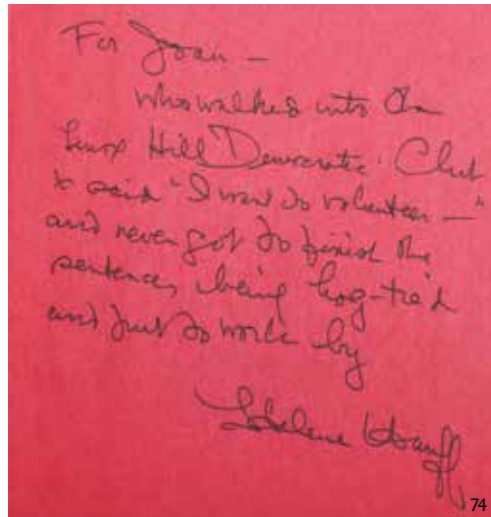 For Joan —
who walked into the
Lenox Hill Democratic Club
& said "I want to volunteer —"
and never got to finish the
sentence, being hog-tied
and put to work by
Helene Hanff
74